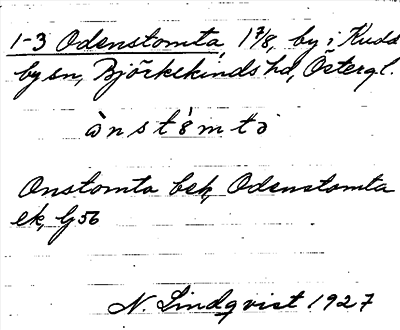 1-3 Odenstomta, 1 7/8, by i Kudd
by sn, Björkekinds hd, Östergl.
ànstòmtà
Onstomta bek, Odenstomta
ek, G 56
N. Lindqvist 1927